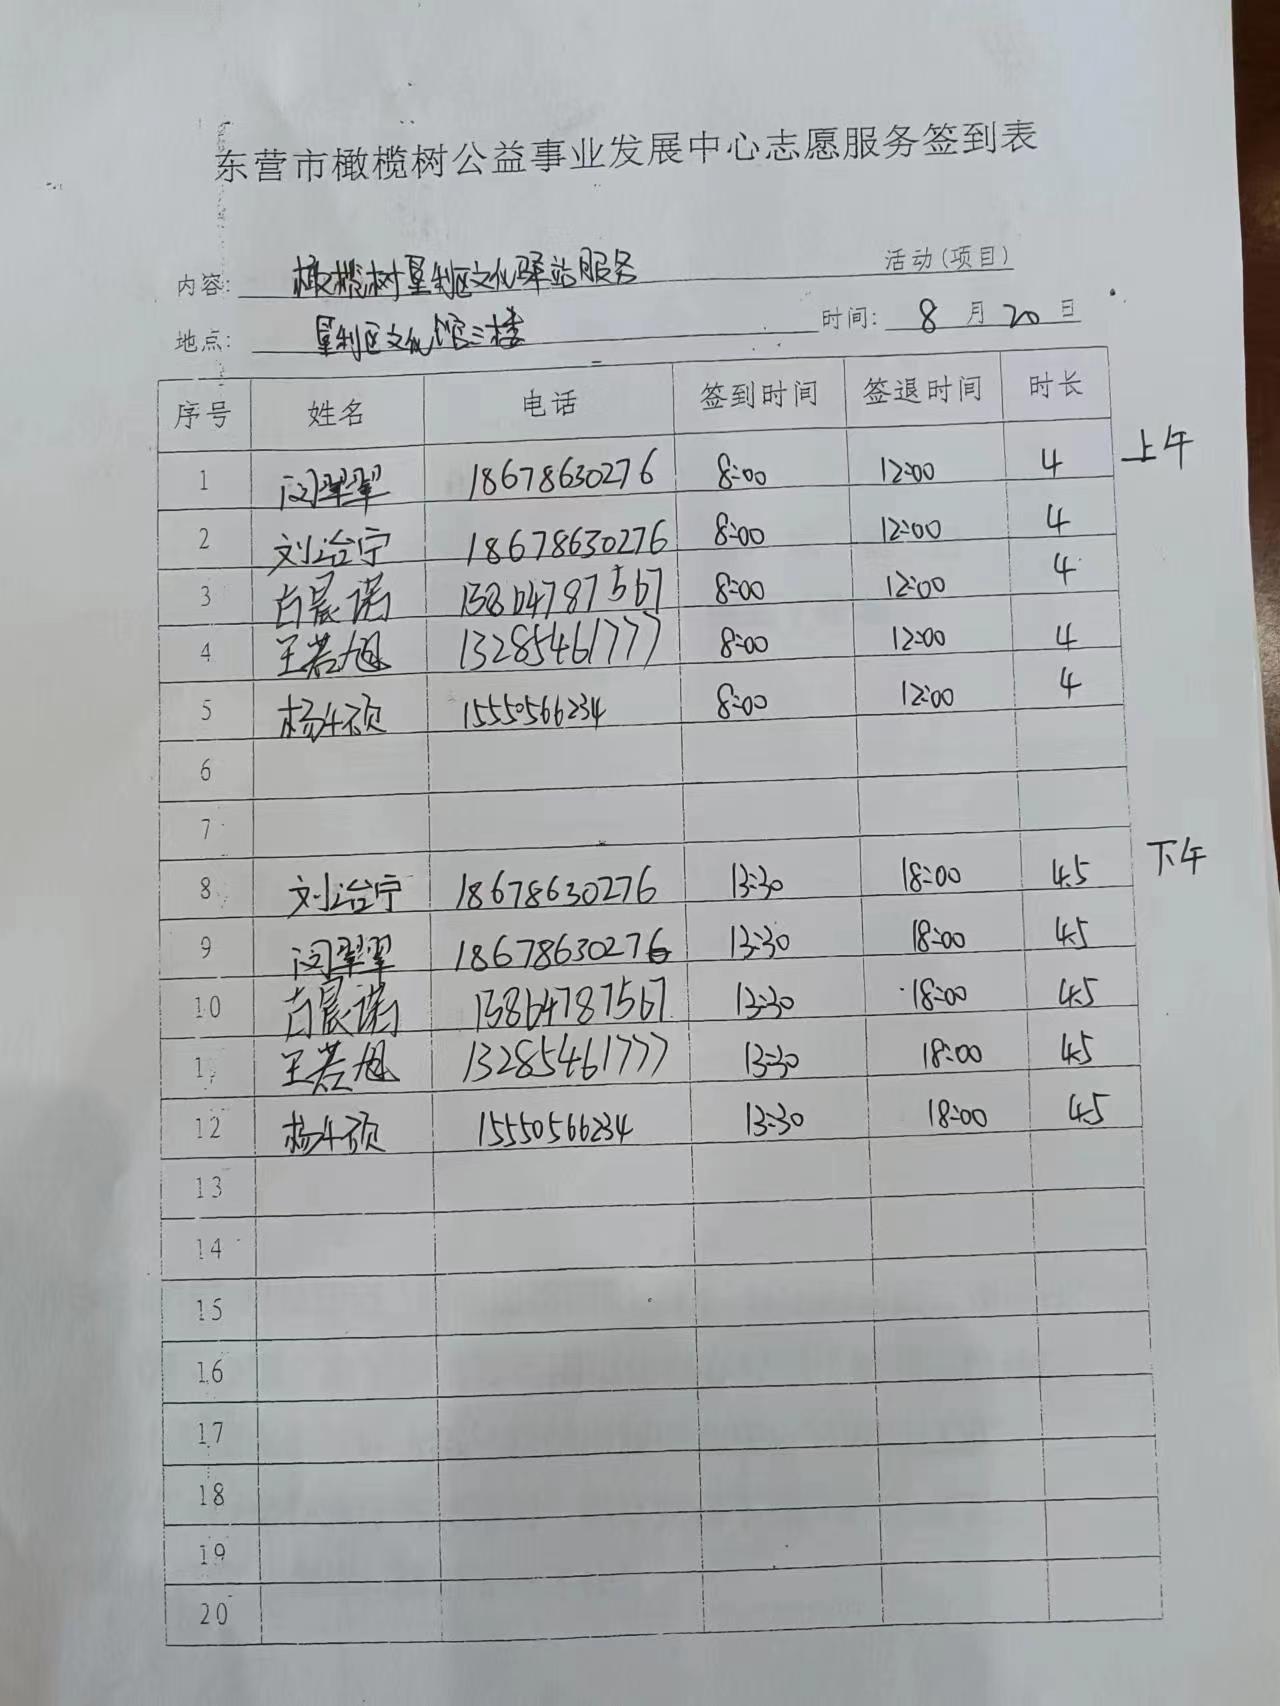 东营市橄榄树公益事业发展中心志愿服务签到表
内容: 橄榄树垦利区文化驿站服务 活动(项目)
地点: 垦利区文化馆三楼 时间: 8 月 20 日
序号 姓名 电话 签到时间 签退时间 时长
1 闵翠翠 18678630276 8:00 12:00 4 上午
2 刘治宁 18678630276 8:00 12:00 4
3 晨诺 13864787567 8:00 12:00 4
4 王若旭 13285461777 8:00 12:00 4
5 杨硕 15550566234 8:00 12:00 4
6
7
8 刘治宁 18678630276 13:30 18:00 4.5 下午
9 闵翠翠 18678630276 13:30 18:00 4.5
10 晨诺 13864787567 13:30 18:00 4.5
1 王若旭 13285461777 13:30 18:00 4.5
12 杨硕 15550566234 13:30 18:00 4.5
13
14
15
16
17
18
19
20